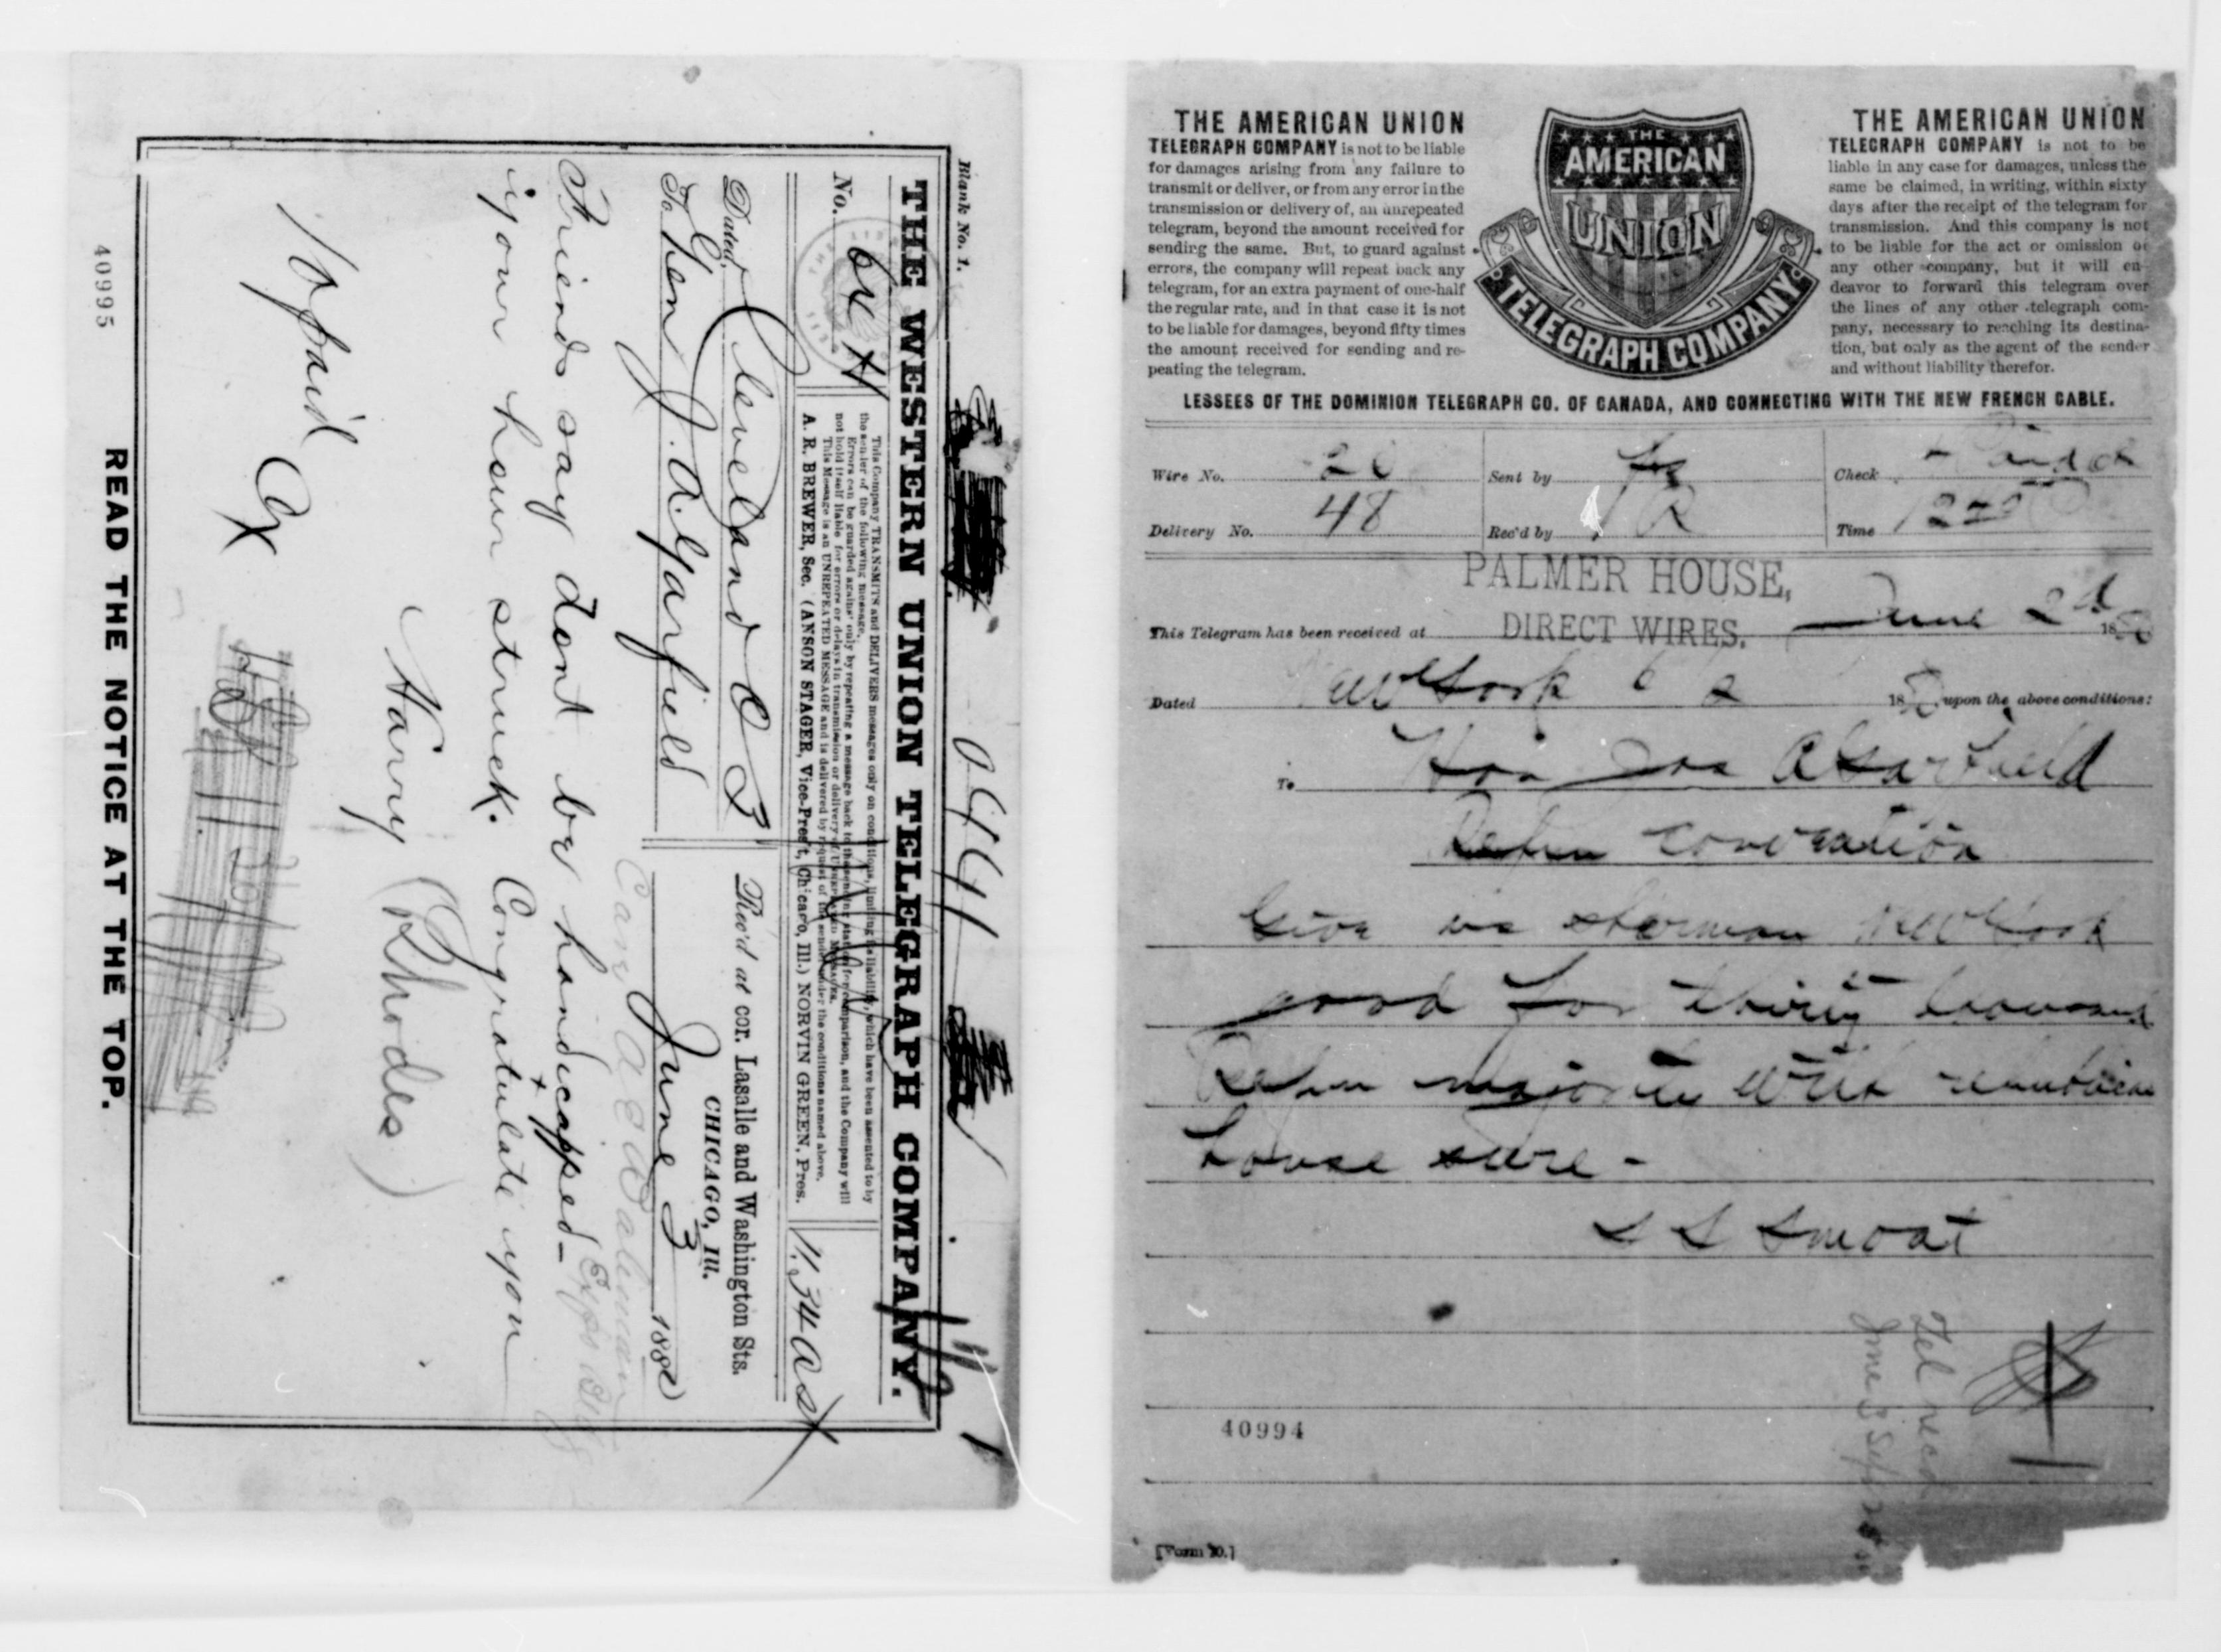 Blank No. 1.
THE WESTERN UNION TELEGRAPH COMPANY.
This Company TRANSMITS and DELIVERS messages only on conditions, limiting its liability, which have been assented to by
the sender of the following message.
Errors can be guarded against only by repeating a message back to the sending station for comparison, and the Company will
not hold itself liable for errors or delays in transmission or delivery of Unrepeated Messages.
This Message is an UNREPEATED MESSAGE and is delivered by request of the sender under the conditions named above.
A. R. BREWER, Sec. (ANSON STAGER, Vice-Pres't, Chicago, Ill.) NORVIN GREEN, Pres.
No.
11.34 a
Dated Cleveland O 3
Rec'd at cor. Lasalle and Washington Sts.
CHICAGO, Ill.
To Gen J. A. Garfield
June 3 1880
Friends say dont be handicapped–
your hour struck. Congratulate you
Harry (Rhodes)
10 paid
READ THE NOTICE AT THE TOP.
40995
THE AMERICAN UNION
TELEGRAPH COMPANY is not to be liable
for damages arising from any failure to
transmit or deliver, or from any error in the
transmission or delivery of, an unrepeated
telegram, beyond the amount received for
sending the same. But, to guard against
errors, the company will repeat back any
telegram, for an extra payment of one-half
the regular rate, and in that case it is not
to be liable for damages, beyond fifty times
the amount received for sending and re-
peating the telegram.
THE
AMERICAN
UNION
TELEGRAPH COMPANY
THE AMERICAN UNION
TELEGRAPH COMPANY is not to be
liable in any case for damages, unless the
same be claimed, in writing, within sixty
days after the receipt of the telegram for
transmission. And this company is not
to be liable for the act or omission of
any other company, but it will en-
deavor to forward this telegram over
the lines of any other telegraph com-
pany, necessary to reaching its destina-
tion, but only as the agent of the sender
and without liability therefor.
LESSEES OF THE DOMINION TELEGRAPH CO. OF CANADA, AND CONNECTING WITH THE NEW FRENCH CABLE.
Wire No. 20 Sent by Check
Delivery No. 48 Rec'd by Time
PALMER HOUSE,
DIRECT WIRES.
This Telegram has been received at June 2d 1880
Dated New York 6 2 1880 upon the above conditions:
To Hon Jas A Garfield
Repn convention
Give us sherman New York
good for thirty thousand
Repn majority with republican
house sure–
S S Smoat
Tel recd
June 3
40994
[Form 20.]